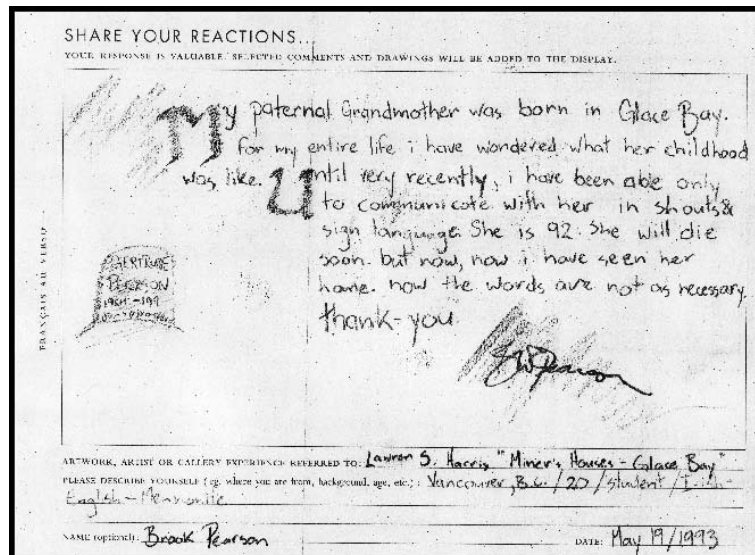 SHARE YOUR REACTIONS...
YOUR RESPONSE IS VALUABLE. SELECTED COMMENTS AND DRAWINGS WILL BE ADDED TO THE DISPLAY.
My paternal Grandmother was born in Glace Bay.
for my entire life i have wondered what her childhood
was like. Until very recently, i have been able only
to communicate with her in shouts &
sign language. She is 92. She will die
soon. but now, now i have seen her
home. now the words are not as necessary
thank-you.
GERTRUDE
PEARSON
FRANÇAIS AU VERSO
ARTWORK, ARTIST OR GALLERY EXPERIENCE REFERRED TO: Lawren S. Harris "Miner's Houses - Glace Bay"
PLEASE DESCRIBE YOURSELF (eg. where you are from, background, age, etc.): Vancouver, B.C. / 20 / student / Irish-
English-Mennonite
NAME (optional): Brook Pearson
DATE: May 19/1993